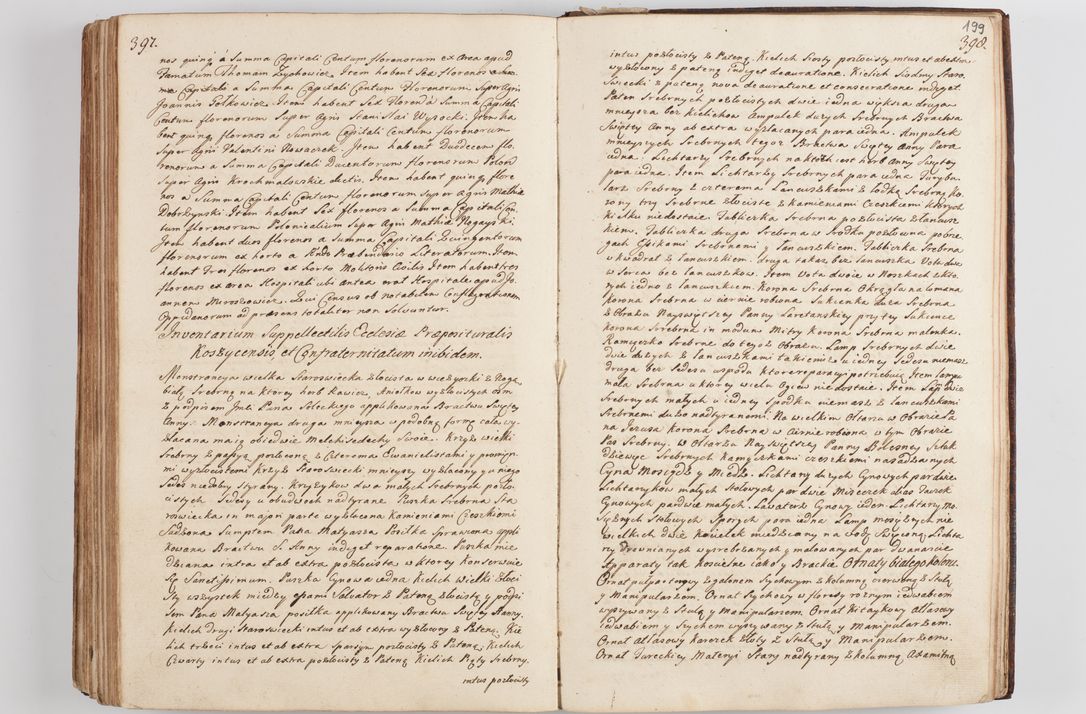 397.
nos quinq̨ á Summa Capitali Centum florenorum ex Area apud
Famatum Thomam Zychowicz. Item habent Sex florenos annuae
Capitalis a Summa Capitali Centum Florenorum Super Agris
Joannis Fołkowicz. Item habent Sex Floren: á Summa Capitali
Centum florenorum Super Agris Stanislai Wysocki. Item ha-
bent quinq̨ florenos a Summa Capitali Centum florenorum
Super Agris Valentini Nawaczek. Item habent Duodecem flo-
renorum a Summa Capitali Ducentorum florenorum Polon:
Super Agris Krochmalowskie dictis. Item habent quinq̨ flore
nos a Summa Capitali Centum Florenorum Super Agris Mathiæ
Dobrzynski. Item habent Sex florenos a Summa Capitali Cen-
tum florenorum Polonicalium Super Agris Mathiæ Nogayski.
Item habent duos florenos a Summa Capitali
florenorum ex horto a Rndo Præbendario Literatorum. Item
habent Tres florenos ex horto Molitoris Civilis Item habent tres
florenos ex area Hospitali ubi antea erat Hospitale apud Jo-
annem Miroszowicz. Qui Census ob notabilem Conflagrationem
Oppidanorum ad præsens totaliter non Solvuntur.
Inventarium Suppellectilis Ecclesiæ Præposituralis
Koszycensis, et Confraternitatum inibidem.
Monstrancya wielka Staroswiecka złocista w wieżynki z Nogą
białą Srebrną na ktorey herb kawior, Aniołkow wyzłocistych osm
z podpisem Jmci Pana Soleckiego applikowana Bractwu Swiętey
Anny: Monstrancya druga mnieysza w podobną formę cała wy-
złacana maią obiedwie Melchisedechy Swoie. Krzyż wielki
Srebrny z passyą pozłocony z Czterema Ewanielistami y promyp:
mi wyzłocistemi krzyż Staroswiecki mnieyszy wyzłacony y u niego
Sedes niedobry Styrany. Krzyżykow dwa małych Srebrnych pozło-
cistych Sedesy u obudwoch nadtyrane Puszka Srebrna Sta
roswiecka in majori parte wyzłocona kamieniami Czeskiemi
Sadzona Sumptem Pana Matyasza Posiłka Sprawiona appli
kowana Bractwu S. Anny indiget reparatione. Puszka mie
dziana intra et ab extra pozłocista w ktorey Konserwuie
się Sanctissimum. Puszka Cynowa iedna Kielich wielki złoci
sty wszystek między Osami Salvator z Pateną złocistą y podpi
sem Pana Matyasza posiłka applikowany Bractwu Swiętey Hanny.
Kielich drugi Staroswiecki intus et ab extra wyzłocony z Pateną. Kie
lich trzeci intus et ab extra Sparsim pozłocisty z Pateną. Kielich
Czwarty intus et ab extra pozłocisty z Pateną Kielich Piąty Srebrny.
intus pozłocisty
199
398.
intus pozłocisty z Pateną. Kielich Szosty pozłocisty intus et ab extra
wyzłocony z pateną indiget deauratione. Kielich Siodmy Staro-
swiecki z pateną nova deauratione et consecratione indiget.
Paten Srebrnych pozłocistych dwie iedna większa druga
mnieysza bez kielichow Ampułek dużych Srebrnych Bractwa
Swiętey Anny ab extra wyzłacanych para iedna. Ampułek
mnieyszych Srebrnych tegoż Bractwa Swiętey Anny Para
iedna. Lichtarzy Srebrnych na ktorych iest herb Anny Swiętey
para iedna. Item Lichtarzy Srebrnych para iedna Turybu-
larz Srebrny z czterema Lancuszkami z łodką Srebrną Ko-
rony try Srebrne złociste z kamieniami Czeskiemi ktorych
kielku niedostaie. Tabliczka Srebrna pozłocista z łancusz
kiem. Tabliczka druga Srebrna w srodku pozłowna po brze-
gach Gżikami Srebrnemi y łancuszkiem. Tabliczka Srebrna
w kwadrat z łancuszkiem. druga takaż bez łancuszka Vota dwa
w Serca bez łancuszkow. Item Vota dwoie w Noszkach z kto-
rych iedno z łancuszkiem. Korona Srebrna Okrągła na łamana
korona Srebrna w ciernie robiona Sukienka duża Srebrna
z Obrazu Nayswiętszy Panny Loretanskiey przy tey Sukience
korona Srebrna in modum Mitry Korona Srebrna malenka.
Rameczko Srebrne do tegoż Obrazu. Lamp Srebrnych dwie
dwie dużych z łancuszkami takiemiż u iedney Sedesu niemasz
druga bez Sedesu uspodu ktore reparacyi potrzebuią Item lampa
mała Srebrna u ktorey wielu Ogniw niedostaie. Item Lamp dwie
Srebrnych małych u iedney Spodku niemasz z łancuszkami
Srebrnemi dużo nadtyranemi. Na wielkim Ołtarzu w Obrazie
na Jezusa Korona Srebrna w Ciernie robiona w tym Obrazie
Pas Srebrny. W Ołtarzu Nayswiętszey Panny Bolesney Sztuk
dziewięc Srebrnych kamyszkami czeskiemi nasadzanych
Cyna Mosiądz y Miedź. Lichtarzy dużych Cynowych par dwie
Lichtarzykow małych Stołowych par dwie Miseczek abo Tacek
Cynowych par dwie małych. Lawaterz Cynowy ieden. Lichtarzy Mo-
siężnych Stołowych Sporych para iedna Lamp mosiężnych nie
wielkich dwie Kociełek miedziany na Wodę Swięconą. Lichta
rzy Drewnianych wysrebrzanych y malowanych par dwanascie
Apparaty tak Koscielne iako y Brackie Ornaty białego koloru.
Ornat pulpatrowy z galonem Szychowym z kolumną czerwoną z Stułą
y Manipularzem. Ornat Szychowy w floresy roznym iedwabiem
wyszywany z Stułą y Manipularzem. Ornat Kitaykowy Atlasowy
iedwabiem y Szychem wyszywany z Stułą y Manipularzem.
Ornat Atlasowy koroczek złoty z Stułą y Manipularzem.
Ornat Tureckiey Materyi Stary nadtyrany z kolumną Axamitną